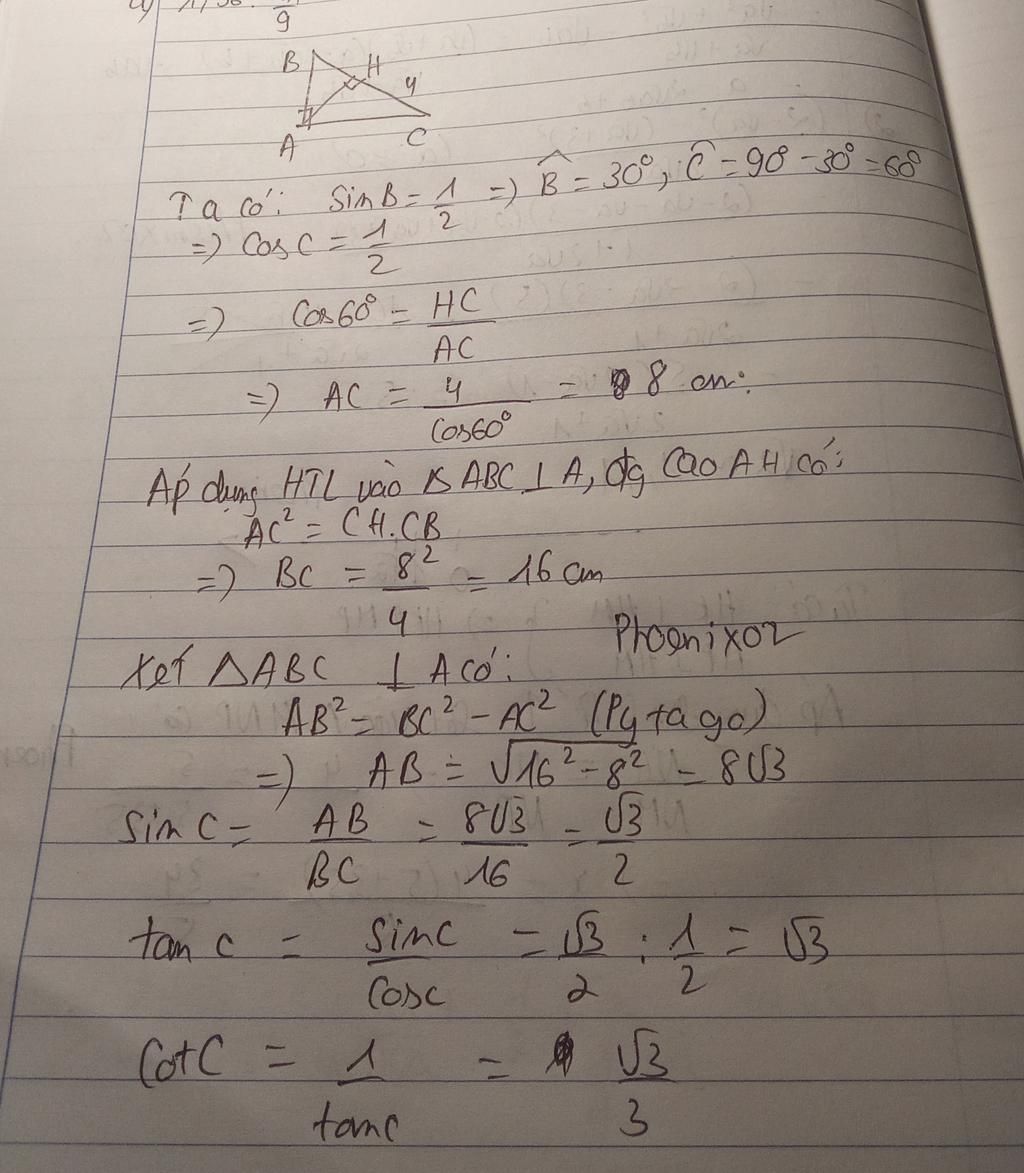 9
B H 4
A C
Ta có: SinB = 1/2 => B̂ = 30°, Ĉ = 90° - 30° = 60°
=> Cos C = 1/2
=> Cos60° = HC/AC
=> AC = 4/Cos60° = 8 cm.
Áp dụng HTL vào △ ABC ⊥ A, đg Cao AH có:
AC² = CH.CB
=> BC = 8²/4 = 16 cm
Phoenix02
Xét △ABC ⊥ A có:
AB² = BC² - AC² (Pytago)
=> AB = √16² - 8² = 8√3
Sin C = AB/BC = 8√3/16 = √3/2
tan C = SinC/CosC = √3/2 : 1/2 = √3
CotC = 1/tanC = √3/3